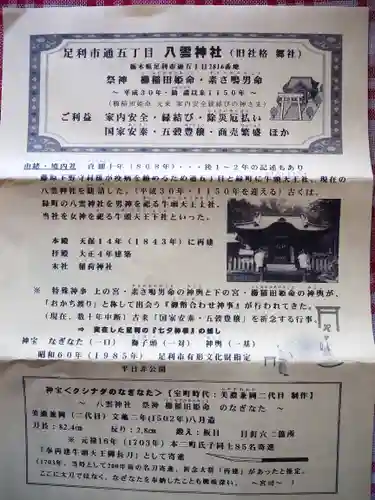 足利市通五丁目 八雲神社（旧社格 郷社）
栃木県足利市通五丁目2816番地
祭神 櫛稲田姫命・素さ嗚男命
～ 平成30年・鎮 1150年 ～
（櫛稲田姫命 元来 家内安全縁結びの神さま）
ご利益 家内安全・縁結び・除災厄払い
国家安泰・五穀豊穣・商売繁盛 ほか
由緒・境内社 貞観十年（868年）・・・後1～2年の記述もあり
疫病を鎮めるため通五丁目と緑町に牛頭天王社、現在の
八雲神社を勧請した。（平成30年・1150年を迎える）古くは、
緑町の八雲神社を男神に祀る牛頭天王上社、
当社を女神を祀る牛頭天王下社といった。
本殿 天保14年（1843年）に再建
拝殿 大正4年建築
末社 稲荷神社
※ 特殊神事 上の宮・素さ嗚男命の神輿と下の宮・櫛稲田姫命の神輿が、
「おから渡り」と称して出会う『御幣合わせ神事』が行われてきた。
（現在、数十年中断）古来「国家安泰・五穀豊穣」を祈念する行事。
⇒ 実在した足利の『七夕神事』の類し
神宝 なぎなた（一口） 獅子頭（一対） 神輿（一基）
昭和60年（1985年） 足利市有形文化財指定
平日非公開
神宝＜クシナダのなぎなた＞【室町時代：美濃兼岡二代目 制作】
～ 八雲神社 祭神 櫛稲田姫命 の なぎなた ～
美濃兼岡（二代目）文亀二年（1502年）八月造
刃長：82.4cm 反り：2.8cm 鍛え：板目 目釘穴二箇所
※ 元禄16年（1703年）本二町氏子同士85名寄進
「奉再建牛頭天王御長刀」として寄進
（1703年、当時として200年前の名刀寄進、祈念太刀「再建」があったと推定、
ここに太刀ではなく、なぎなたを奉納したことも興味深い。～宮司～ ）